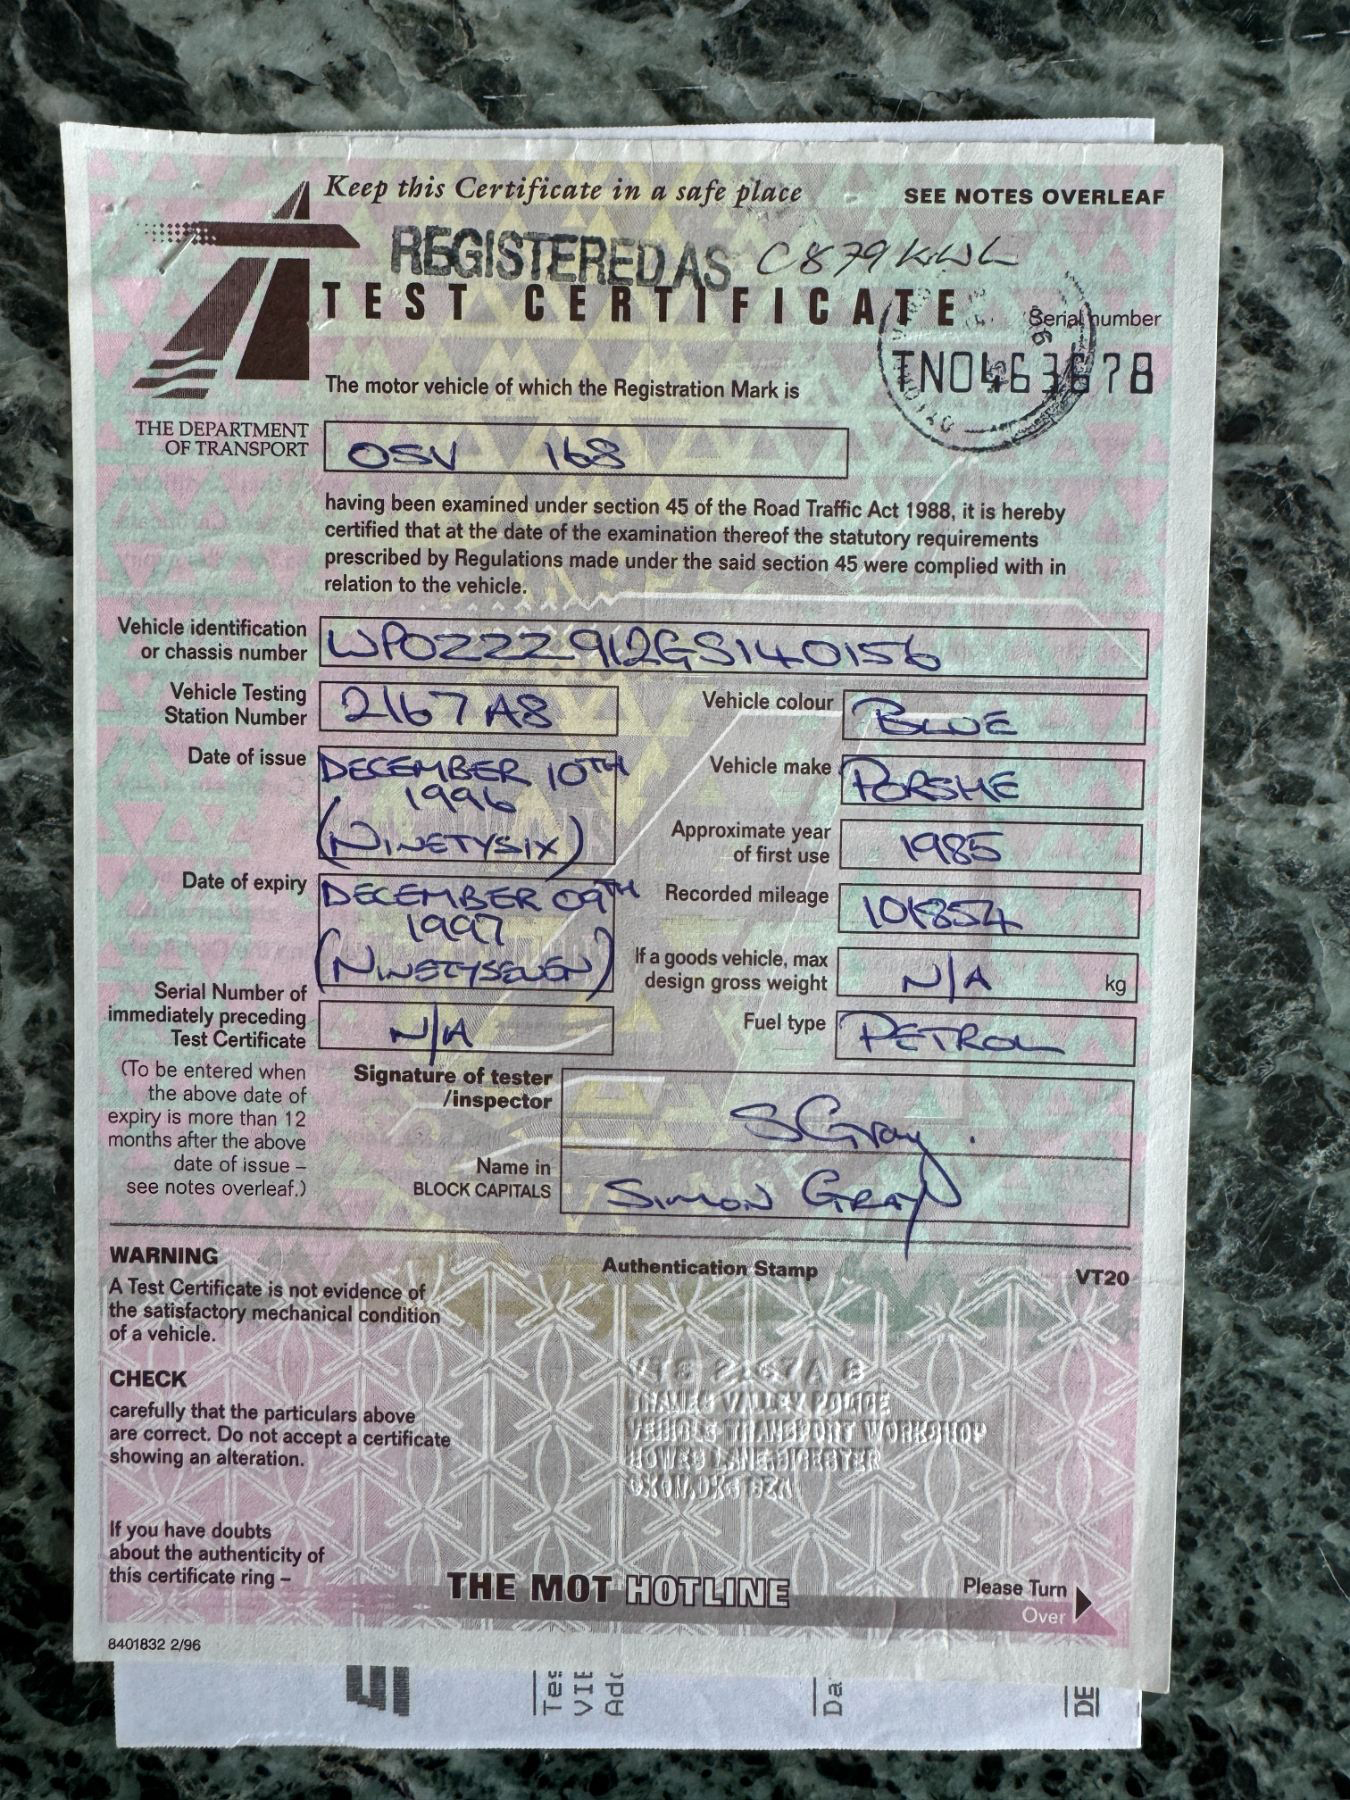 Keep this Certificate in a safe place
SEE NOTES OVERLEAF
REGISTERED AS C879KWL
TEST CERTIFICATE
Serial number
TN0463678
The motor vehicle of which the Registration Mark is
THE DEPARTMENT
OF TRANSPORT
OSV 168
having been examined under section 45 of the Road Traffic Act 1988, it is hereby
certified that at the date of the examination thereof the statutory requirements
prescribed by Regulations made under the said section 45 were complied with in
relation to the vehicle.
Vehicle identification
or chassis number
WPOZZZ912GS140156
Vehicle Testing
Station Number
2167A8
Vehicle colour
BLUE
Date of issue
DECEMBER 10TH
1996
(NINETYSIX)
Vehicle make
PORSHE
Approximate year
of first use
1985
Date of expiry
DECEMBER 09TH
1997
(NINETYSEVEN)
Recorded mileage
101854
If a goods vehicle, max
design gross weight
N/A
kg
Serial Number of
immediately preceding
Test Certificate
N/A
Fuel type
PETROL
(To be entered when
the above date of
expiry is more than 12
months after the above
date of issue –
see notes overleaf.)
Signature of tester
/inspector
SGray.
Name in
BLOCK CAPITALS
SIMON GRAY
WARNING
A Test Certificate is not evidence of
the satisfactory mechanical condition
of a vehicle.
Authentication Stamp
VT20
CHECK
carefully that the particulars above
are correct. Do not accept a certificate
showing an alteration.
THAMES VALLEY POLICE
VEHICLE TRANSPORT WORKSHOP
HOWES LANE,BICESTER
If you have doubts
about the authenticity of
this certificate ring –
THE MOT HOTLINE
Please Turn
Over
8401832 2/96